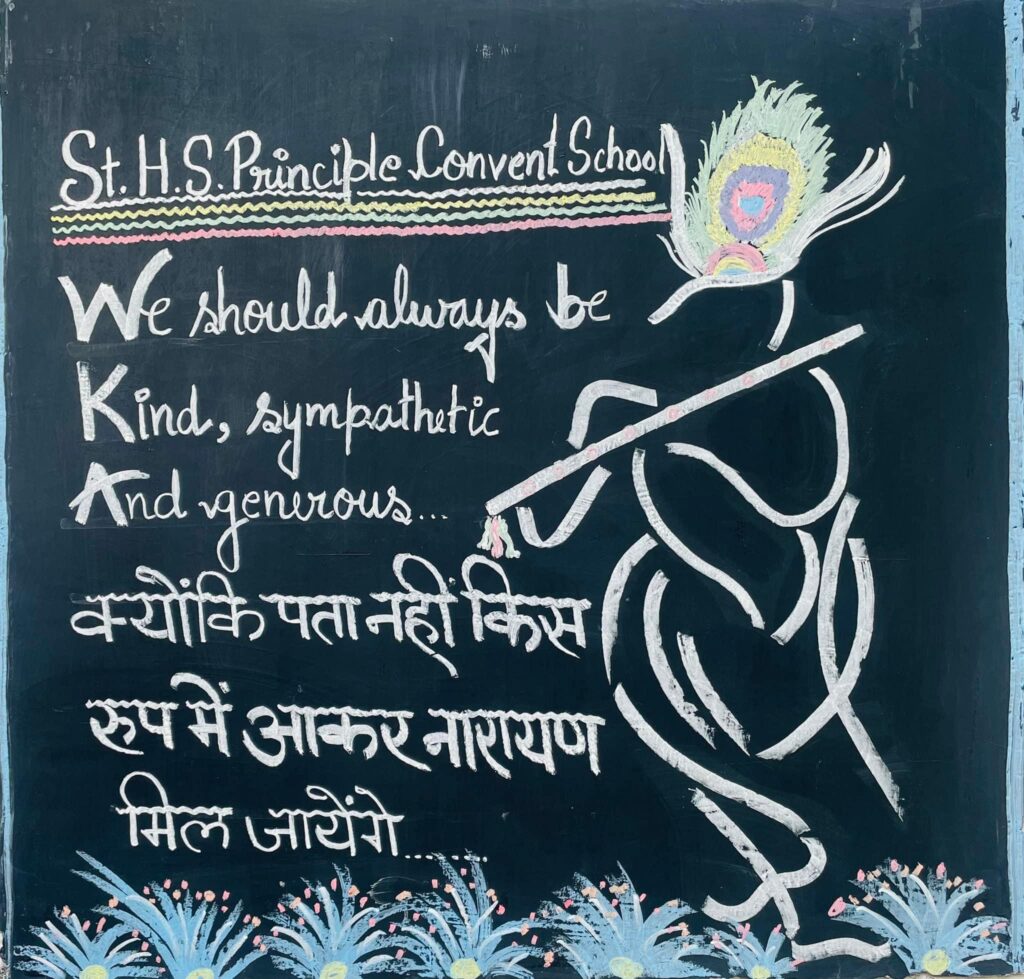 St. H.S. Principle Convent School
We should always be
Kind, sympathetic
And generous...
क्योंकि पता नहीं किस
रुप में आकर नारायण
मिल जायेंगे........